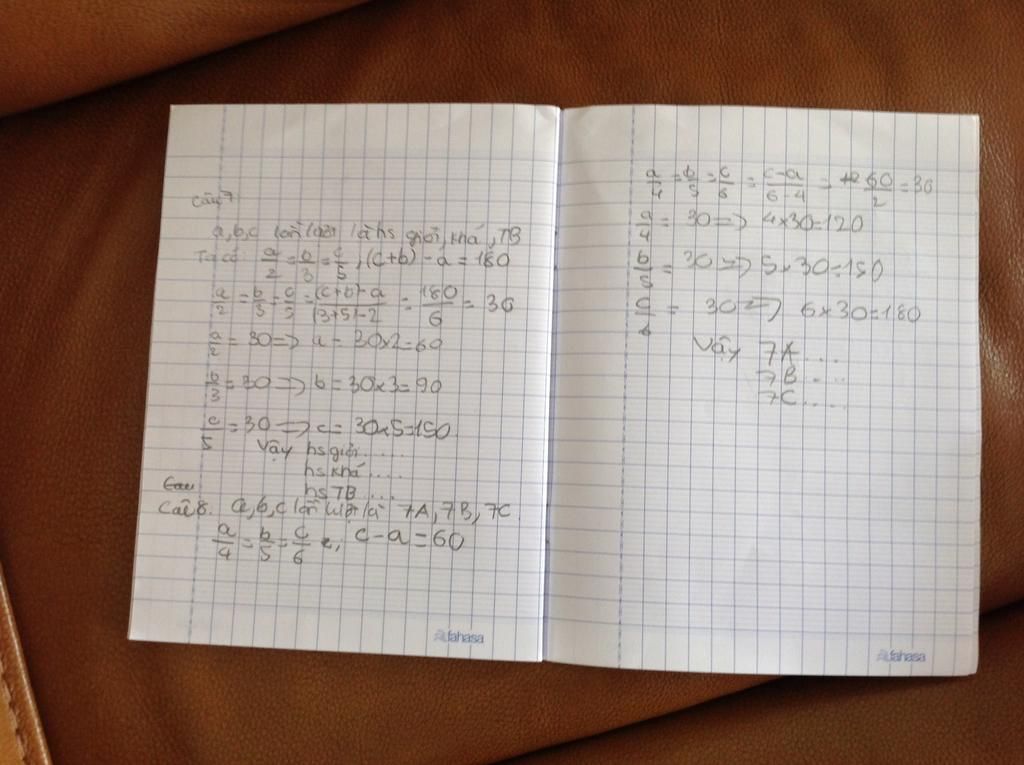 Câu 7
a,b,c lần lượt là hs giỏi, khá, TB
Ta có: a/2 = b/3 = c/5 ; (c+b) - a = 180
a/2 = b/3 = c/5 = (c+b)-a/(3+5)-2 = 180/6 = 30
a/2 = 30 => a = 30x2 = 60
b/3 = 30 => b = 30x3 = 90
c/5 = 30 => c = 30x5 = 150
Vậy hs giỏi.....
hs khá....
hs TB....
Câu
Câu 8. a,b,c lần lượt là 7A, 7B, 7C
a/4 = b/5 = c/6 ; c-a = 60
fahasa
a/4 = b/5 = c/6 = c-a/6-4 = 60/2 = 30
a/4 = 30 => 4x30=120
b/5 = 30 => 5x30=150
c/6 = 30 => 6x30=180
Vậy 7A ....
7B ....
7C ....
fahasa